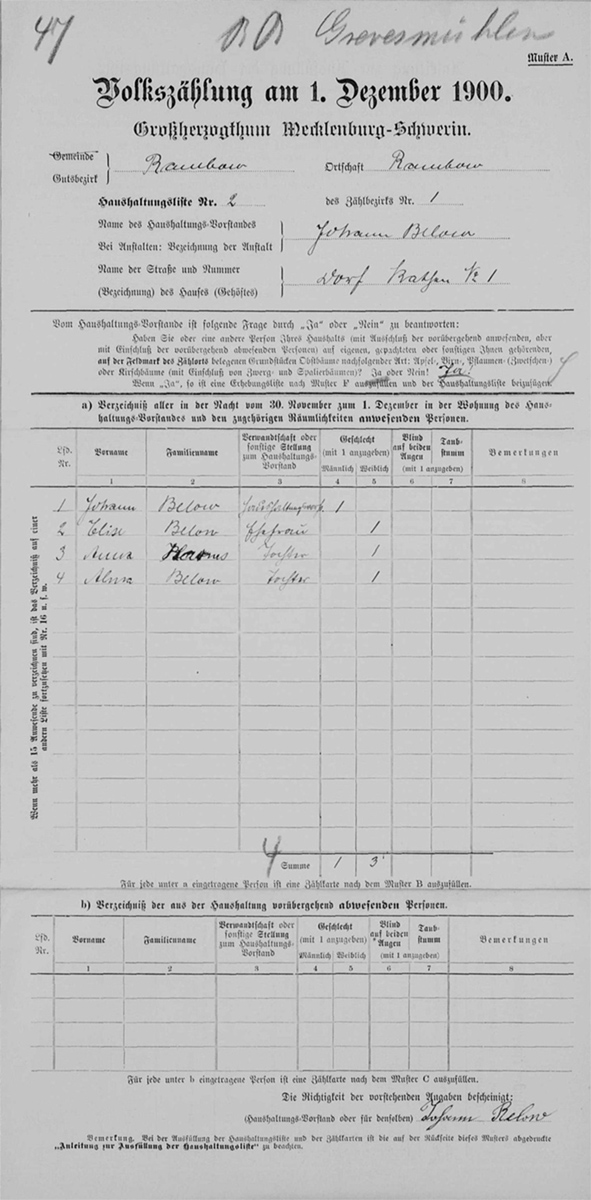 47 Grevesmühlen
Muster A.
Volkszählung am 1. Dezember 1900.
Großherzogthum Mecklenburg-Schwerin.
Gemeinde
Gutsbezirk } Rambow Ortschaft Rambow
Haushaltungsliste Nr. 2 des Zählbezirks Nr. 1
Name des Haushaltungs-Vorstandes
Bei Anstalten: Bezeichnung der Anstalt } Johann Below
Name der Straße und Nummer
(Bezeichnung) des Hauses (Gehöftes) } Dorf Kathen № 1
Vom Haushaltungs-Vorstande ist folgende Frage durch „Ja" oder „Nein" zu beantworten:
Haben Sie oder eine andere Person Ihres Haushalts (mit Ausschluß der vorübergehend anwesenden, aber
mit Einschluß der vorübergehend abwesenden Personen) auf eigenen, gepachteten oder sonstigen Ihnen gehörenden,
auf der Feldmark des Zählorts belegenen Grundstücken Obstbäume nachfolgender Art: Apfel-, Birn-, Pflaumen-(Zwetschen-)
oder Kirschbäume (mit Einschluß von Zwerg- und Spalierbäumen)? Ja oder Nein! Ja.
Wenn „Ja", so ist eine Erhebungsliste nach Muster F auszufüllen und der Haushaltungsliste beizufügen.
a) Verzeichniß aller in der Nacht vom 30. November zum 1. Dezember in der Wohnung des Haus-
haltungs-Vorstandes und den zugehörigen Räumlichkeiten anwesenden Personen.
Lfd. Nr. Vorname Familienname Verwandtschaft oder sonstige Stellung zum Haushaltungs-Vorstand Geschlecht (mit 1 anzugeben) Männlich Weiblich Blind auf beiden Augen Taub-stumm (mit 1 anzugeben) Bemerkungen
1 2 3 4 5 6 7 8
1 Johann Below Haushaltungsvorst. 1
2 Elise Below Ehefrau 1
3 Anna Harms Tochter 1
4 Alma Below Tochter 1
Wenn mehr als 15 Anwesende zu verzeichnen sind, ist das Verzeichniß auf einer
andern Liste fortzusetzen mit Nr. 16 u. s. w.
4 Summe 1 3
Für jede unter a eingetragene Person ist eine Zählkarte nach dem Muster B auszufüllen.
b) Verzeichniß der aus der Haushaltung vorübergehend abwesenden Personen.
Lfd. Nr. Vorname Familienname Verwandtschaft oder sonstige Stellung zum Haushaltungs-Vorstand Geschlecht (mit 1 anzugeben) Männlich Weiblich Blind auf beiden Augen Taub-stumm (mit 1 anzugeben) Bemerkungen
1 2 3 4 5 6 7 8
Für jede unter b eingetragene Person ist eine Zählkarte nach dem Muster C auszufüllen.
Die Richtigkeit der vorstehenden Angaben bescheinigt:
(Haushaltungs-Vorstand oder für denselben) Johann Below
Bemerkung. Bei der Ausfüllung der Haushaltungsliste und der Zählkarten ist die auf der Rückseite dieses Musters abgedruckte
„Anleitung zur Ausfüllung der Haushaltungsliste" zu beachten.